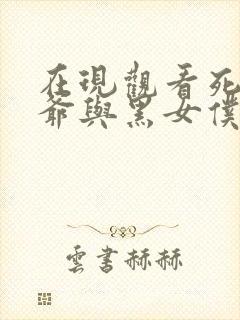 在現觀看死
爺與黑女僕
雲書赫赫